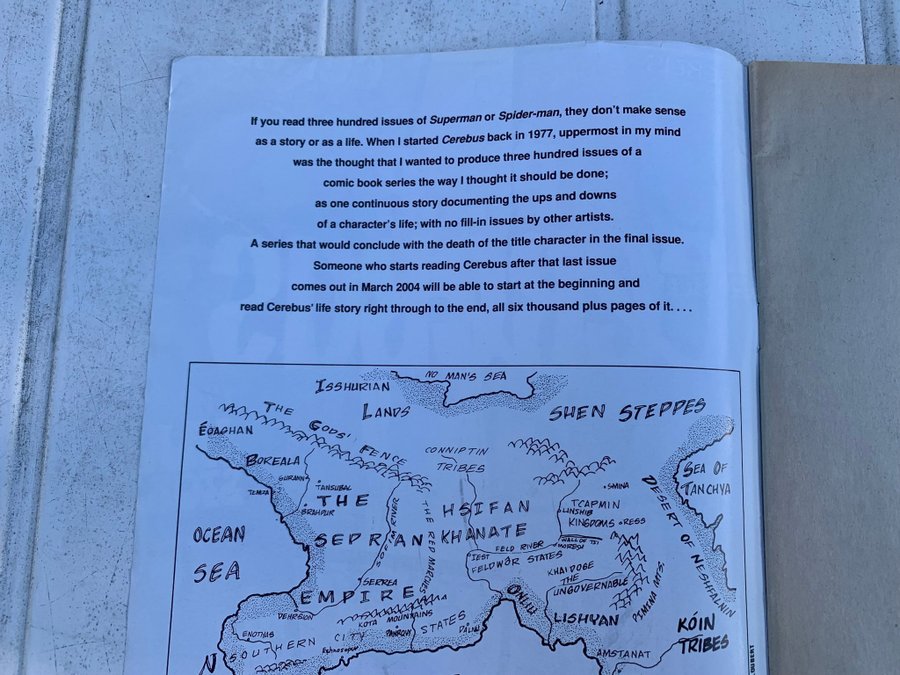 If you read three hundred issues of Superman or Spider-man, they don't make sense
as a story or as a life. When I started Cerebus back in 1977, uppermost in my mind
was the thought that I wanted to produce three hundred issues of a
comic book series the way I thought it should be done;
as one continuous story documenting the ups and downs
of a character's life; with no fill-in issues by other artists.
A series that would conclude with the death of the title character in the final issue.
Someone who starts reading Cerebus after that last issue
comes out in March 2004 will be able to start at the beginning and
read Cerebus' life story right through to the end, all six thousand plus pages of it. . . .
NO MAN'S SEA
ISSHURIAN
LANDS
SHEN STEPPES
THE GODS' FENCE
EOAGHAN
CONNIPTIN
TRIBES
BOREALA
SEA OF
TANCHYA
TANSUBAL
SMINA
THE
SEPRAN
EMPIRE
HSIFAN
KHANATE
TCAPMIN
KINGDOMS
LINSHIB
RESS
DESERT OF NESHFALNIN
OCEAN
SEA
THE RED MARCHES
RIVER
WALL OF TSI
IEST
FELD RIVER
FELDWAR STATES
KHAIDOGE
THE
UNGOVERNABLE
SERREA
ONLIU
LISHYAN
KOTA MOUNTAINS
ENOTHIS
SOUTHERN CITY STATES
KÓIN
TRIBES
AMSTANAT
N